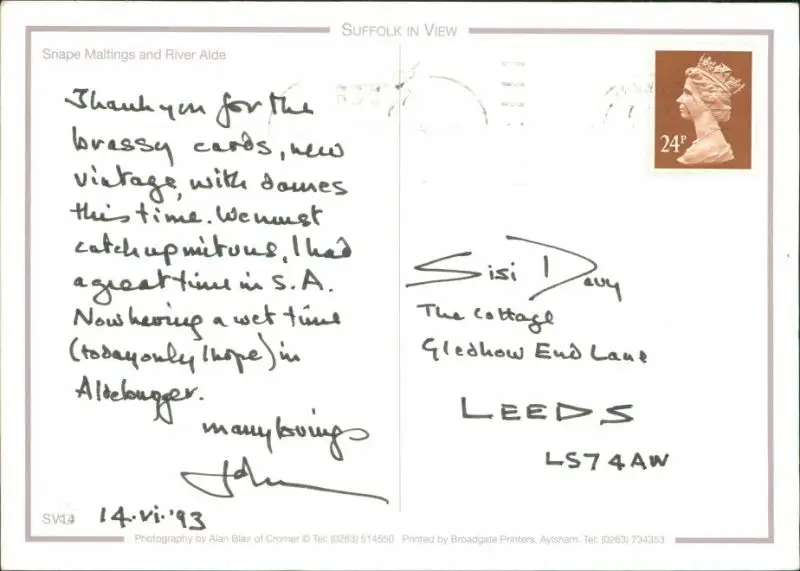 SUFFOLK IN VIEW
Snape Maltings and River Alde
Thank you for the
brassy cards, new
vintage, with domes
this time. We must
catch up mit uns, I had
a great time in S.A.
Now having a wet time
(today only I hope) in
Aldebugger.
many lovings
John
14.vi.'93
24P
Sisi Davy
The Cottage
Gledhow End Lane
LEEDS
LS7 4AW
SV14
Photography by Alan Blair of Cromer © Tel: (0263) 514550 Printed by Broadgate Printers, Aylsham. Tel: (0263) 734353